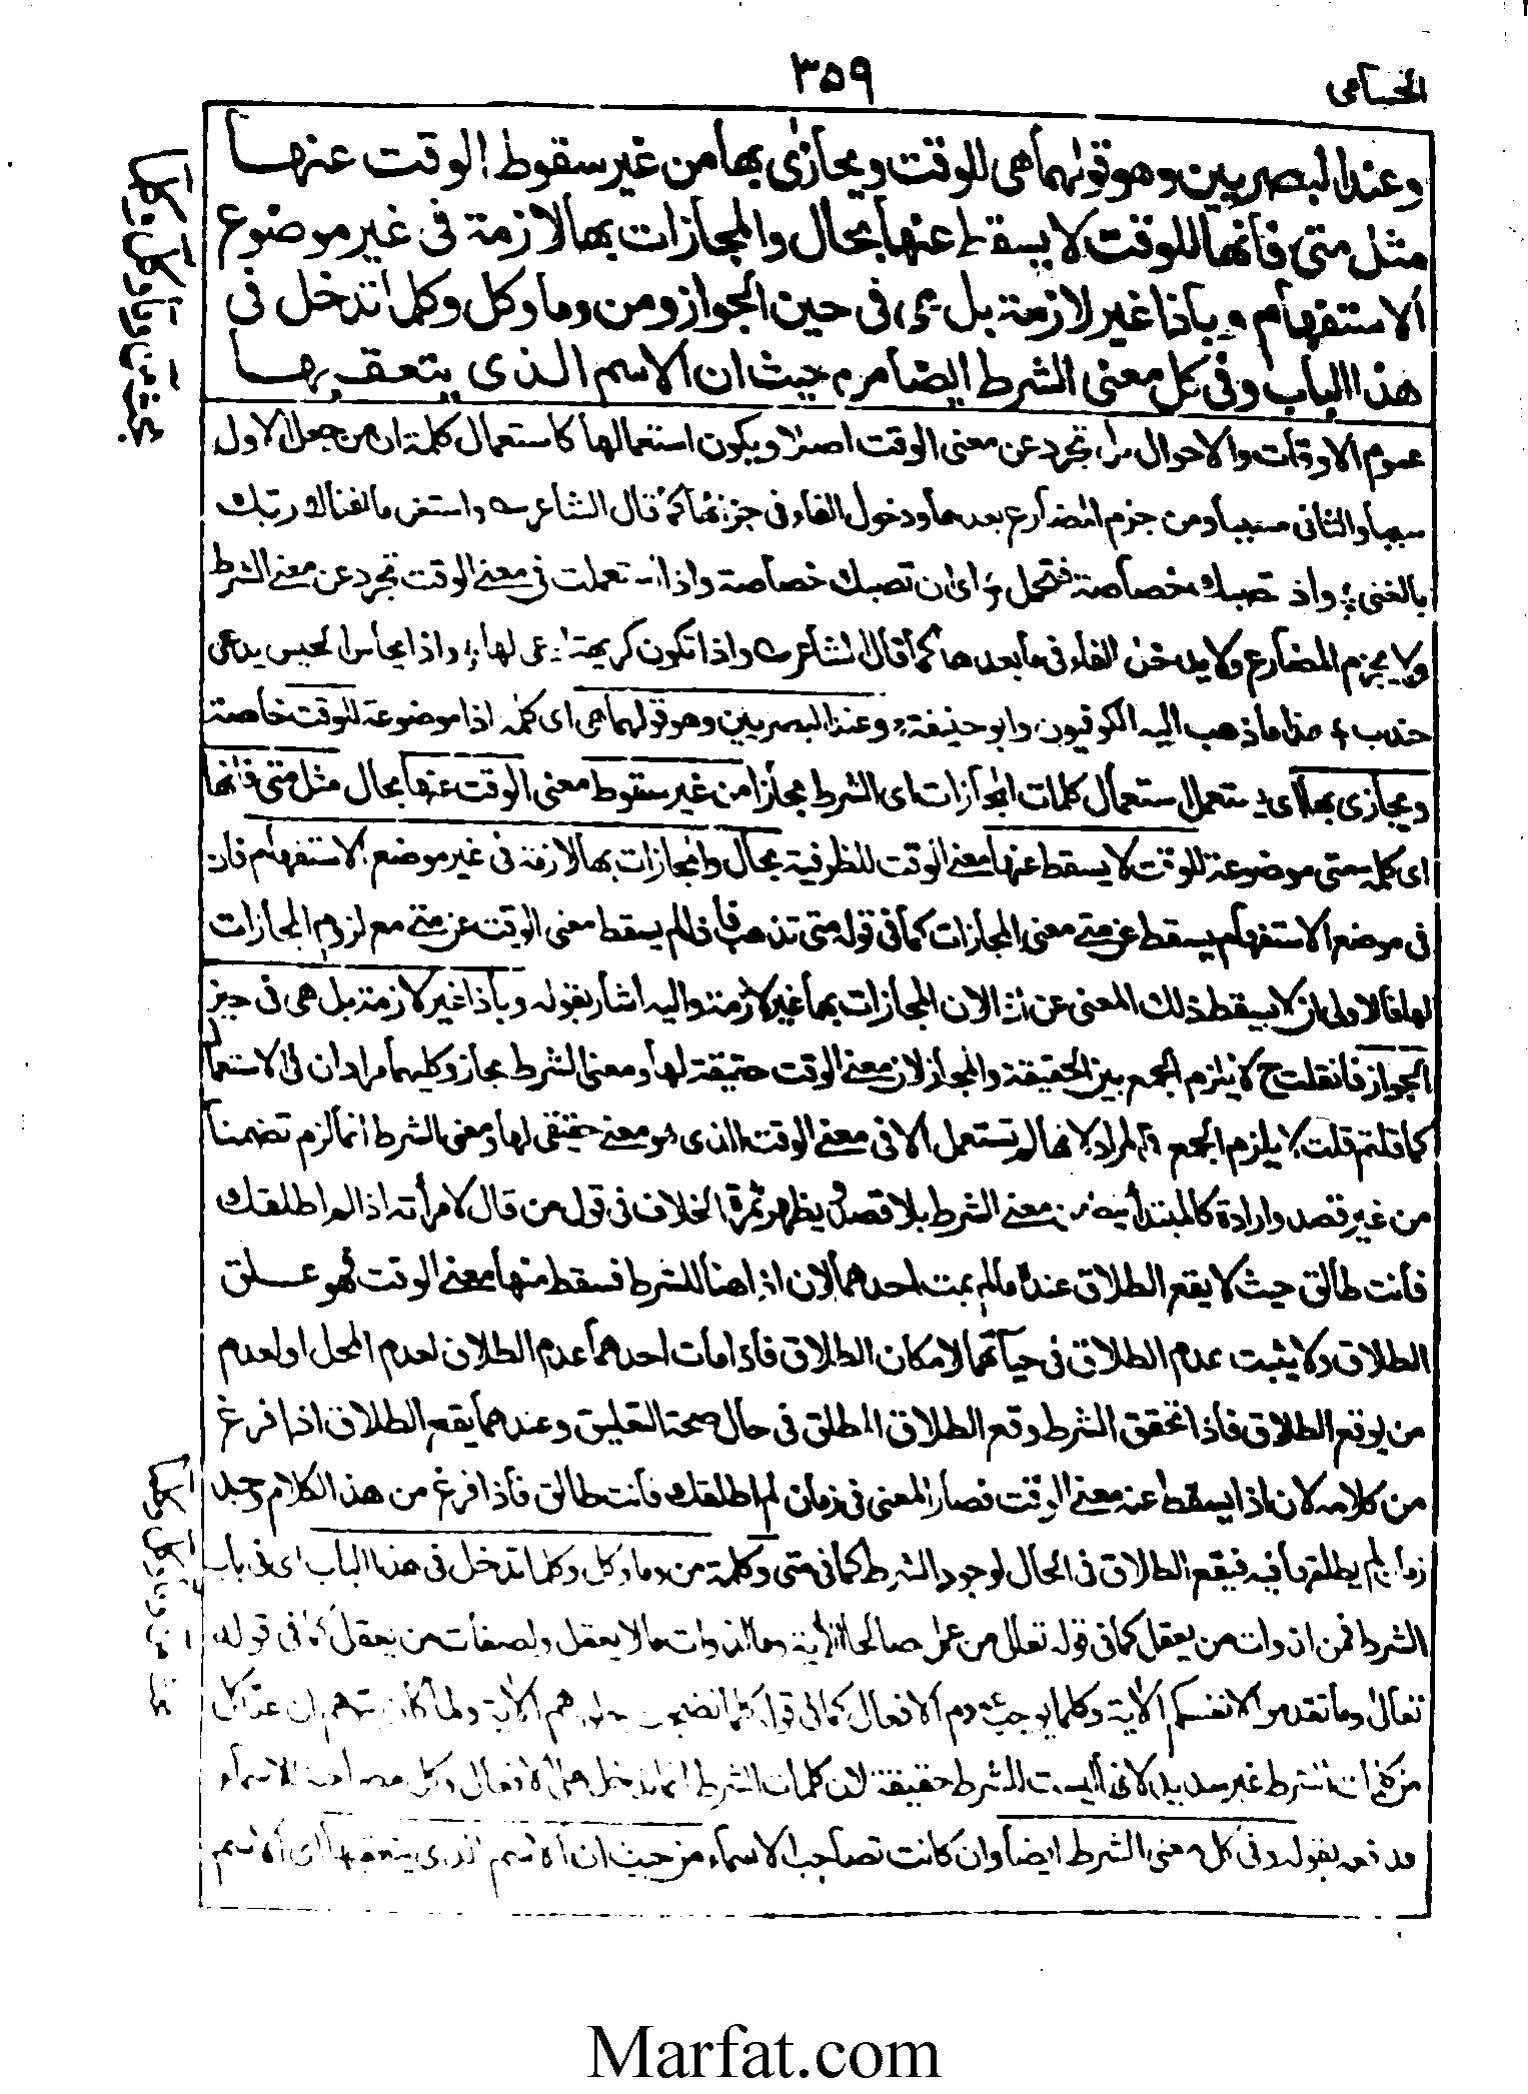 ٣٥٩
الحسامی
وعند البصريين وهو قولهما هی للوقت ويجازی بها من غير سقوط الوقت عنها
مثل متی فانها للوقت لا يسقط عنها بحال والمجازات بها لازمة فی غير موضوع
الاستفهام وباذا غير لازمة بل هی فی حين الجواز ومن وما وكل وكلما تدخل فی
هذا الباب وفی كل معنی الشرط ايضا من حيث ان الاسم الذی يتعقبها
عموم الاوقات والاحوال تجرد عن معنی الوقت اصلا ويكون استعمالها كاستعمال كلمة ان من جعل الاول
سببا والثانی مسببا ومن جزم المضارع بعدها ودخول الفاء فی جزائها كما قال الشاعر واستغن ما اغناك ربك
بالغنی واذا تصبك خصاصة فتحمل ای ان تصبك خصاصة واذا استعملت فی معنی الوقت تجرد عن معنی الشرط
ولا يجزم المضارع ولا يدخل الفاء فی ما بعدها كما قال الشاعر واذا تكون كريهة ادعی لها واذا يحاس الحيس يدعی
جندب هذا ما ذهب اليه الكوفيون وابو حنيفة وعند البصريين وهو قولهما هی ای كلمة اذا موضوعة للوقت خاصة
ويجازی بها ای يستعمل استعمال كلمات المجازات ای الشرط مجازا من غير سقوط معنی الوقت عنها بحال مثل متی فانها
ای كلمة متی موضوعة للوقت لا يسقط عنها معنی الوقت للظرفية بحال والمجازات بها لازمة فی غير موضع الاستفهام فان
فی موضع الاستفهام يسقط عن متی معنی المجازات كما فی قوله متی تذهب فاذا لم يسقط معنی الوقت عن متی مع لزوم المجازات
لها فالاولی ان لا يسقط ذلك المعنی عن اذا لان المجازات بها غير لازمة واليه اشار بقوله وباذا غير لازمة بل هی فی حيز
الجواز فان قلت ح لا يلزم الجمع بين الحقيقة والمجاز لان معنی الوقت حقيقة لها ومعنی الشرط مجاز وكليهما مرادان فی الاستعمال
كما قلتم قلت لا يلزم الجمع المراد لانها لم تستعمل الا فی معنی الوقت الذی هو معنی حقيقی لها ومعنی الشرط انما لزم تضمنا
من غير قصد وارادة كالمبتدأ معنی الشرط بلا قصد ويظهر ثمرة الخلاف فی قول من قال لامرأته اذا لم اطلقك
فانت طالق حيث لا يقع الطلاق عنده ما لم يمت احدهما لان اذا هنا للشرط فسقط منها معنی الوقت فهو علق
الطلاق ولا يثبت عدم الطلاق فی حياتهما لامكان الطلاق فاذا مات احدهما عدم الطلاق لعدم المحل او لعدم
من يوقع الطلاق فاذا تحقق الشرط وقع الطلاق المطلق فی حال صحة التعليق وعندهما يقع الطلاق اذا فرغ
من كلامه لان اذا يسقط عنه معنی الوقت فصار المعنی فی زمان لم اطلقك فانت طالق فاذا فرغ من هذا الكلام وجد
زمان لم يطلقها فيه فيقع الطلاق فی الحال لوجود الشرط كما فی متی وكلمة من وما وكل وكلما تدخل فی هذا الباب ای فی باب
الشرط فمن لذوات من يعقل كما فی قوله تعالی من عمل صالحا الآية وما لذوات ما لا يعقل ولصفات من يعقل كما فی قوله
تعالی وما تقدموا لانفسكم الآية وكلما يوجب عموم الافعال كما فی قوله كلما نضجت جلودهم الآية ولما كان يتوهم ان عد كل
من كلمات الشرط غير سديد لانها ليست للشرط حقيقة لان كلمات الشرط انما تدخل علی الافعال وكل مصاحبة للاسماء
فدفعه بقوله وفی كل معنی الشرط ايضا وان كانت تصاحب الاسماء من حيث ان الاسم الذی يتعقبها ای الاسم
Marfat.com